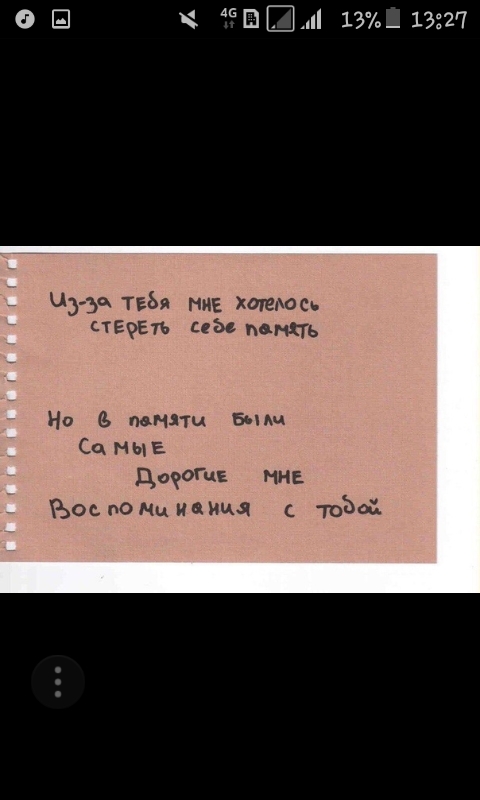 4G 13% 13:27
Из-за тебя мне хотелось
стереть себе память
Но в памяти были
Самые
Дорогие мне
Воспоминания с тобой